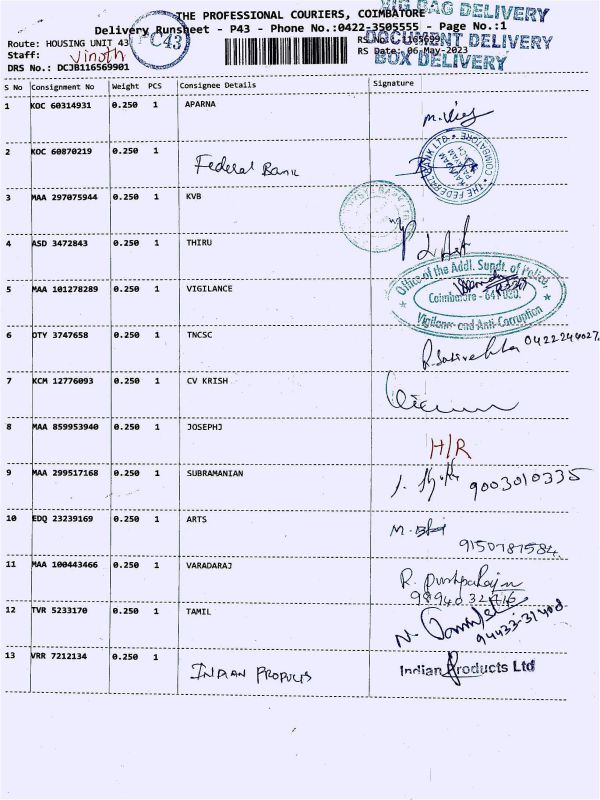 THE PROFESSIONAL COURIERS, COIMBATORE
BAG DELIVERY
Delivery Runsheet - P43 - Phone No.:0422-3505555 - Page No.:1
DOCUMENT DELIVERY
BOX DELIVERY
C43
Route: HOUSING UNIT 43
RS No.: 1165699
Staff: Vinoth
RS Date: 06-May-2023
DRS No.: DCJB116569901
S No Consignment No Weight PCS Consignee Details Signature
1 KOC 60314931 0.250 1 APARNA
2 KOC 60870219 0.250 1 Federal Bank
THE FEDERAL BANK LTD. COIMBATORE
3 MAA 297075944 0.250 1 KVB
4 ASD 3472843 0.250 1 THIRU
5 MAA 101278289 0.250 1 VIGILANCE
Office of the Addl. Supdt. of Police,
Coimbatore - 641 030.
Vigilance and Anti-Corruption
6 DTY 3747658 0.250 1 TNCSC
7 KCM 12776093 0.250 1 CV KRISH
8 MAA 859953940 0.250 1 JOSEPHJ H/R
9 MAA 299517168 0.250 1 SUBRAMANIAN 9003010335
10 EDQ 23239169 0.250 1 ARTS
9150787584
11 MAA 100443466 0.250 1 VARADARAJ
12 TVR 5233170 0.250 1 TAMIL
13 VRR 7212134 0.250 1 INDIAN PRODUCTS Indian Products Ltd